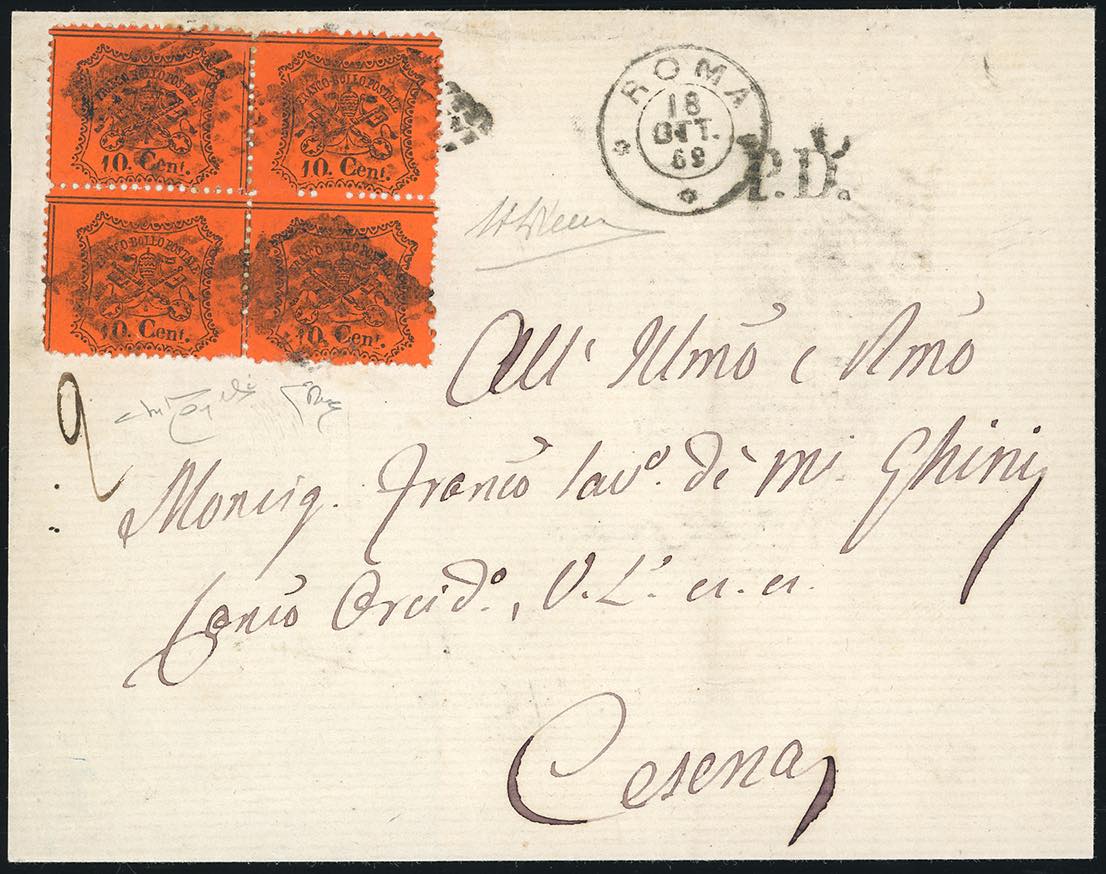 FRANCO BOLLO POSTALE
10. Cent.
FRANCO BOLLO POSTALE
10. Cent.
FRANCO BOLLO POSTALE
10. Cent.
FRANCO BOLLO POSTALE
10. Cent.
ROMA
18
OTT.
69
P.D.
All' Illmo e Rmo
Monsig. Franco Cavo. de' Mi. Ghini
Canco Arcido., V. Le. et. et.
Cesena